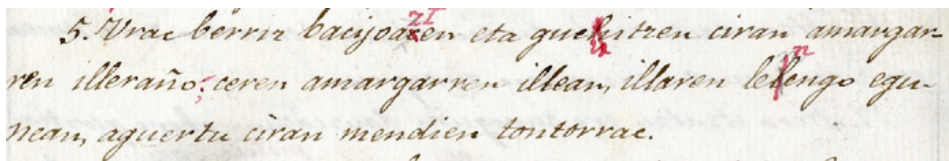 5. Vrac berriz bacijoazen eta guchitzen ciran amargar-
ren illeraño: ceren amargarren illean, illaren lelengo egu-
nean, aguertu ciran mendien tontorrac.